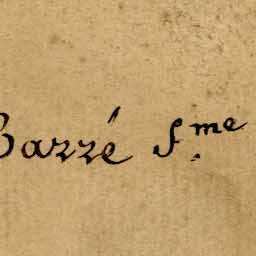 Barré f.me